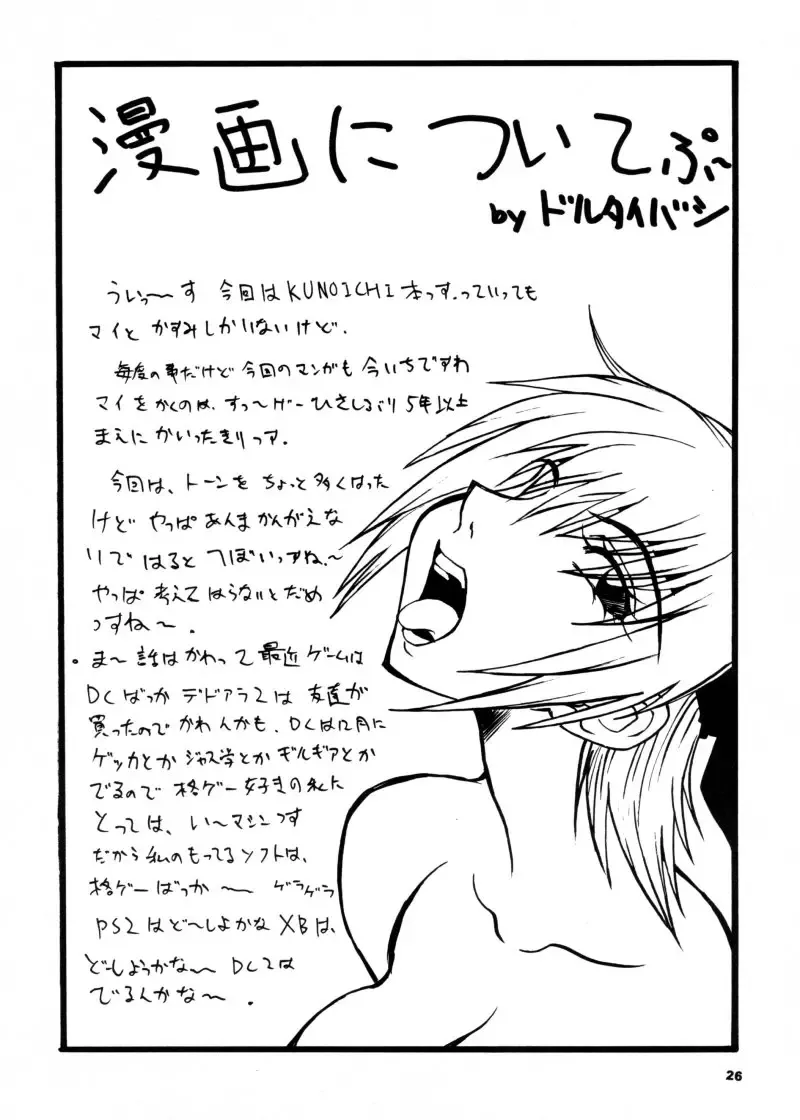 漫画についてぷ〜
by ドルタイバシ
ういっ〜す 今回はKUNOICHI本っす.っていっても
マイと かすみしかいないけど.
毎度の事だけど 今回のマンガも 今いちですわ
マイをかくのは、すっ〜ゲーひさしぶり 5年以上
まえに かいったきりっす.
今回は、トーンを ちょっと多くはった
けど やっぱ あんま かんがえな
いで はると つぼいっすね.〜
やっぱ 考えて はらないと だめ
っすね〜.
・ま〜 話は かわって 最近 ゲームは
DCばっか デドアラ2は 友達が
買ったので かわんかも、DCは12月に
ゲッカとか ジャス学とか ギルギアとか
でるので 格ゲー好きの私に
とっては、い〜マシンっす
だから 私の もってる ソフトは、
格ゲーばっか 〜 ゲラゲラ
PS2は ど〜しよかな XBは、
ど〜しょうかな〜 DC2は
でるんかな〜.
26